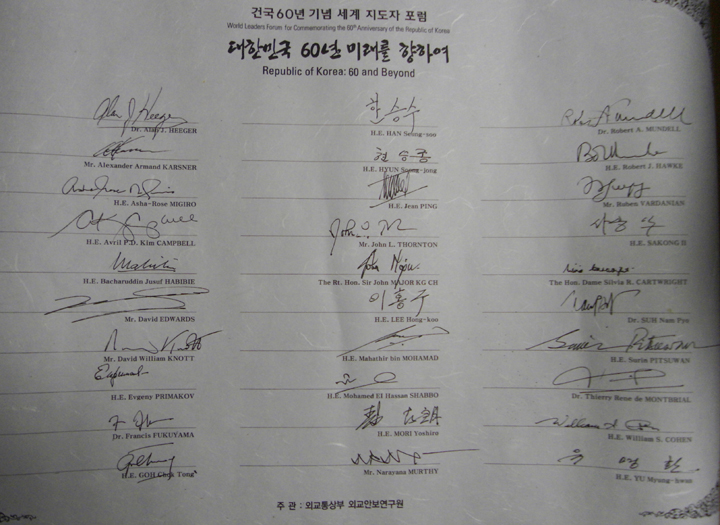 건국60년 기념 세계 지도자 포럼
World Leaders Forum for Commemorating the 60th Anniversary of the Republic of Korea
대한민국 60년 미래를 향하여
Republic of Korea: 60 and Beyond
Dr. Alan J. HEEGER
Mr. Alexander Armand KARSNER
H.E. Asha-Rose MIGIRO
H.E. Avril P.D. Kim CAMPBELL
H.E. Bacharuddin Jusuf HABIBIE
Mr. David EDWARDS
Mr. David William KNOTT
H.E. Evgeny PRIMAKOV
Dr. Francis FUKUYAMA
H.E. GOH Chok Tong
한승수
H.E. HAN Seung-soo
현승종
H.E. HYUN Soong-jong
H.E. Jean PING
Mr. John L. THORNTON
The Rt. Hon. Sir John MAJOR KG CH
이홍구
H.E. LEE Hong-koo
H.E. Mahathir bin MOHAMAD
H.E. Mohamed El Hassan SHABBO
H.E. MORI Yoshiro
Mr. Narayana MURTHY
Dr. Robert A. MUNDELL
H.E. Robert J. HAWKE
Mr. Ruben VARDANIAN
H.E. SAKONG Il
The Hon. Dame Silvia R. CARTWRIGHT
Dr. SUH Nam Pyo
H.E. Surin PITSUWAN
Dr. Thierry Bene de MONTBRIAL
H.E. William S. COHEN
유명환
H.E. YU Myung-hwan
주 관 : 외교통상부 외교안보연구원